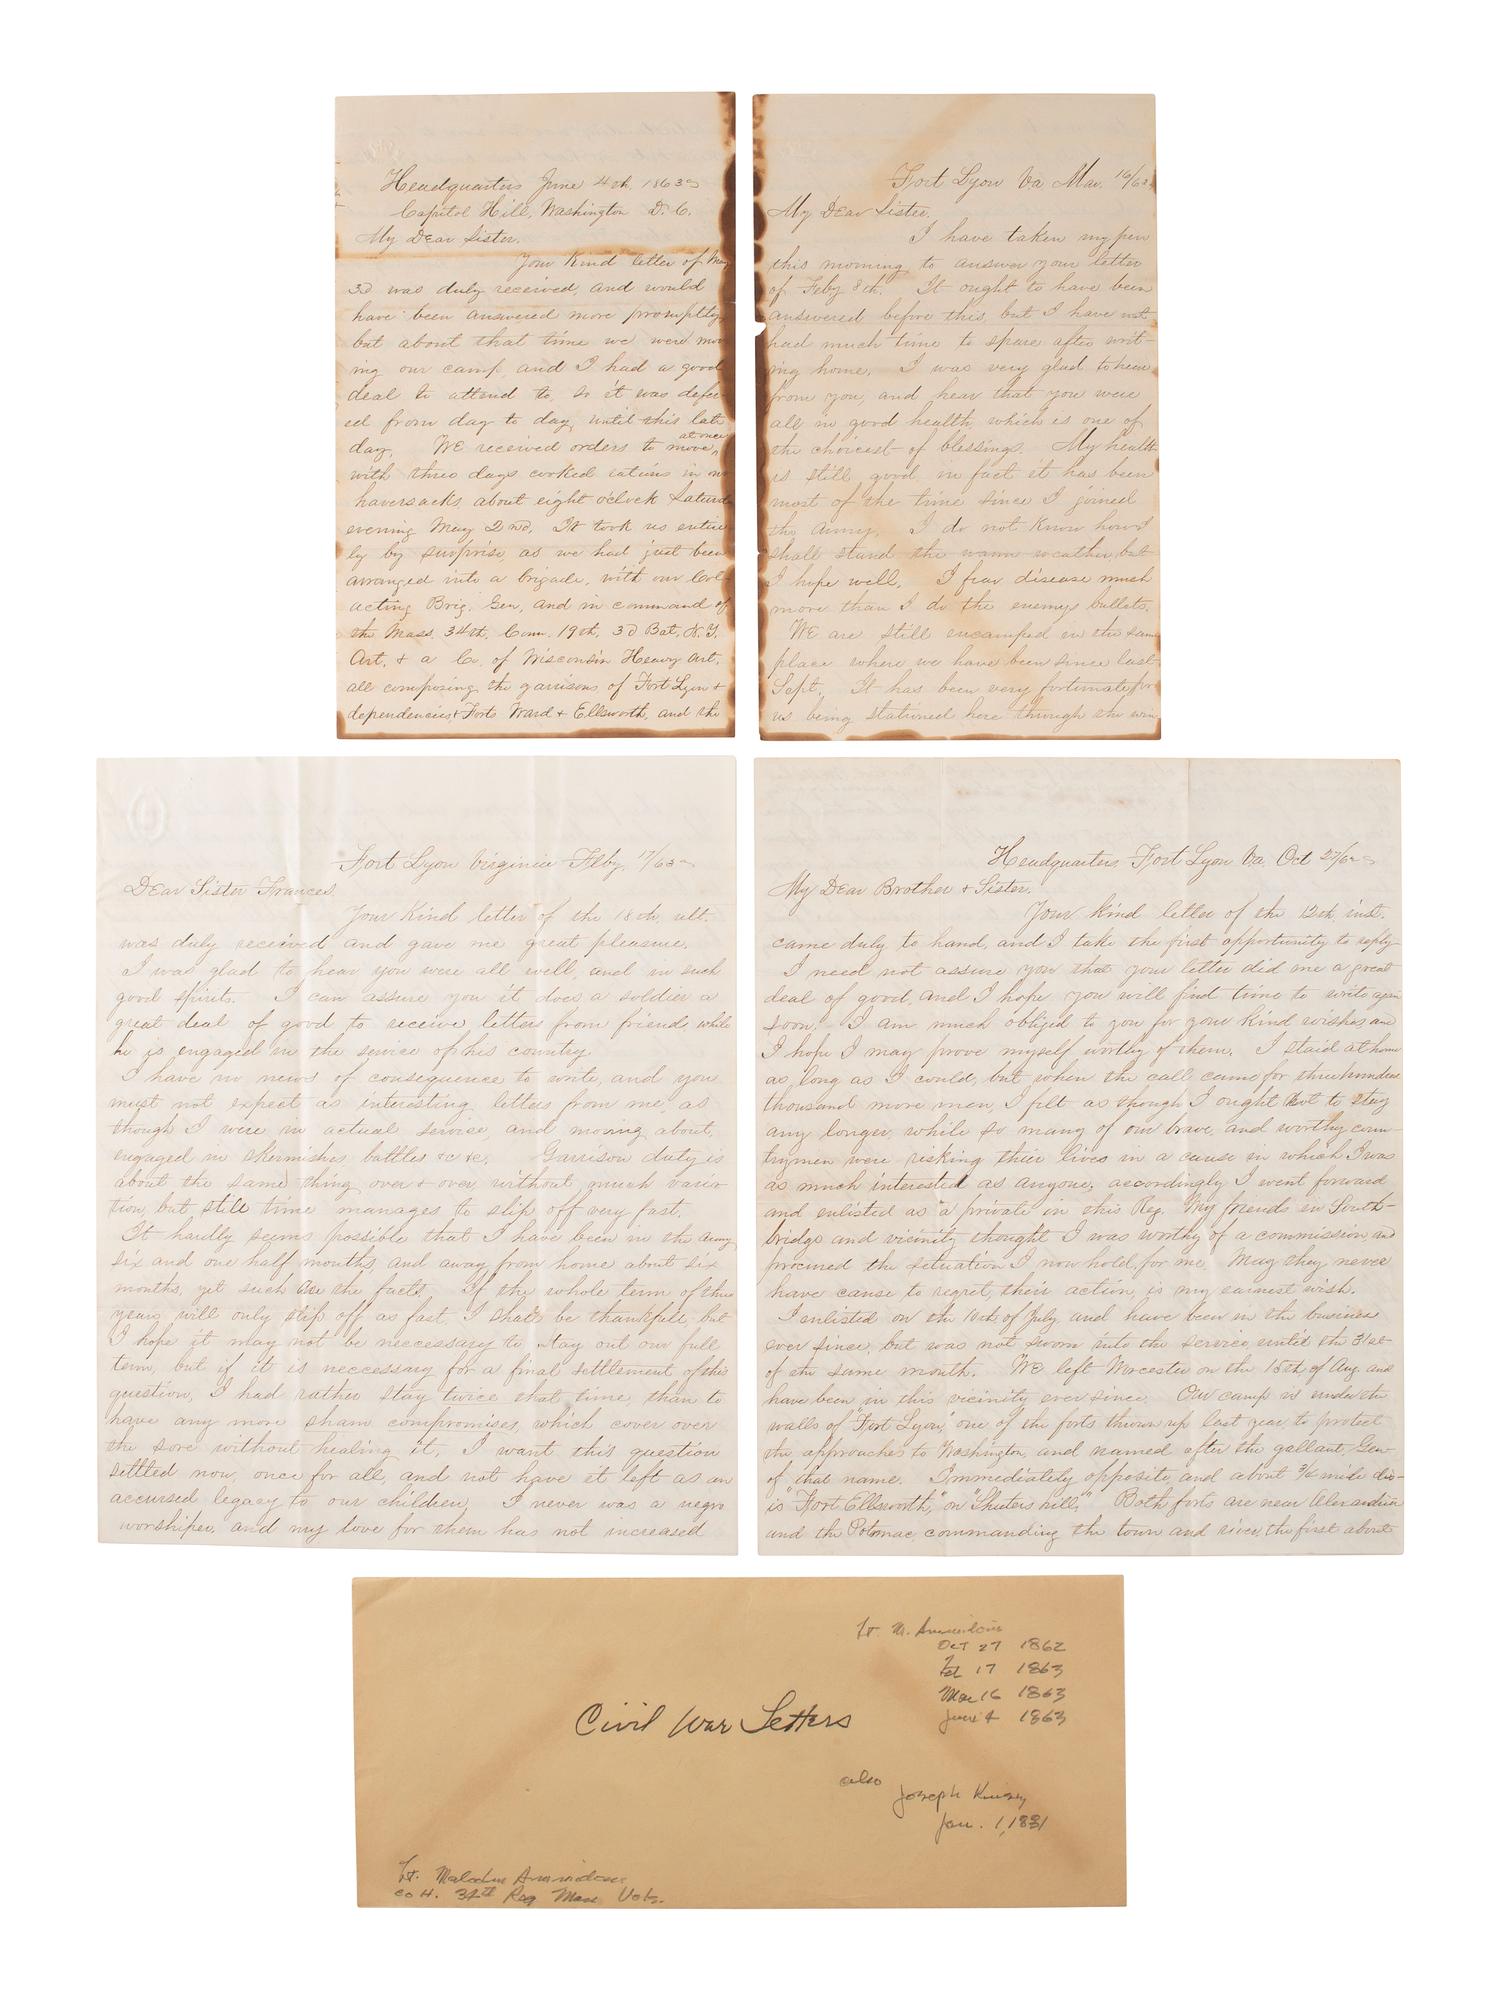 Headquarters June 4th, 1863
Capitol Hill, Washington D. C.
My Dear Sister,
Your Kind letter of May
3d was duly received, and would
have been answered more promptly,
but about that time we were mov
ing our camp, and I had a good
deal to attend to, so it was defer
ed from day to day, until this late
day. We received orders to move, at once
with three days cooked rations in
haversacks, about eight o'clock Saturd
evening May 2nd, It took us entire
ly by surprise, as we had just been
arranged into a brigade, with our Col-
acting Brig. Gen, and in command of
the Mass. 34th, Conn. 19th, 3d Bat, N.Y.
Art, & a Co. of Wisconsin Heavy Art,
all composing the garrisons of Fort Lyon &
dependencies & Forts Ward & Ellsworth, and the
Fort Lyon Va Mar. 16/63
My Dear Sister,
I have taken my pen
this morning to answer your letter
of Feby 8th. It ought to have been
answered before this, but I have not
had much time to spare after writ-
ing home. I was very glad to hear
from you, and hear that you were
all in good health, which is one of
the choicest of blessings. My health
is still good, in fact it has been
most of the time since I joined
the Army. I do not Know how I
shall stand the warm weather, but
I hope well. I fear disease much
more than I do the enemys bullets.
We are still encamped in the same
place where we have been since last
Sept. It has been very fortunate for
us being stationed here through the win
Fort Lyon Virginia Feby. 17/63
Dear Sister Frances,
Your Kind letter of the 18th, ult.
was duly received and gave me great pleasure.
I was glad to hear you were all well, and in such
good spirits. I can assure you it does a soldier a
great deal of good to receive letters from friends while
he is engaged in the service of his country.
I have no news of consequence to write, and you
must not expect as interesting letters from me, as
though I were in actual service, and moving about,
engaged in skermishes battles &c &c. Garrison duty is
about the same thing over & over, without much varia
tion, but still time manages to slip off very fast.
It hardly seems possible that I have been in the Army
six and one half months, and away from home about six
months, yet such are the facts. If the whole term of three
years will only slip off as fast, I shall be thankfull, but
I hope it may not be necessary to stay out our full
term, but if it is neccessary for a final settlement of this
question, I had rather stay twice that time, than to
have any more sham compromises, which cover over
the sore without healing it. I want this question
settled now, once for all, and not have it left as an
accursed legacy to our children. I never was a negro
worshiper, and my love for them has not increased
Headquarters Fort Lyon Va. Oct 27/62
My Dear Brother & Sister,
Your kind letter of the 12th, inst.
came duly to hand, and I take the first opportunity to reply
I need not assure you that your letter did me a great
deal of good, and I hope you will find time to write again
soon. I am much obliged to you for your kind wishes and
I hope I may prove myself worthy of them. I staid at home
as long as I could, but when the call came for three hundred
thousand more men, I felt as though I ought not to stay
any longer, while so many of our brave, and worthy coun-
trymen were risking their lives in a cause in which I was
as much interested as anyone; accordingly I went forward
and enlisted as a private in this Reg. My friends in South-
bridge and vicinity thought I was worthy of a commission, and
procured the situation I now hold, for me. May they never
have cause to regret, their action, is my earnest wish.
I enlisted on the 10th, of July, and have been in the business
ever since, but was not sworn into the service, until the 31st
of the same month. We left Worcester on the 15th, of Aug. and
have been in this vicinity ever since. Our camp is under the
walls of "Fort Lyon," one of the forts thrown up last year, to protect
the approaches to Washington, and named after the gallant, Gen-
of that name. Immediately opposite, and about 3/4 mile dis-
is "Fort Ellsworth," on "Shuters hill." Both forts are near Alexandria
and the Potomac, commanding the town and river, the first about
Lt. M.
Oct 27 1862
Feb 17 1863
Mar 16 1863
June 4 1863
Civil War Letters
also
Joseph
Jan. 1, 1831
Lt.
Co H. 34th Reg Mass Vols.